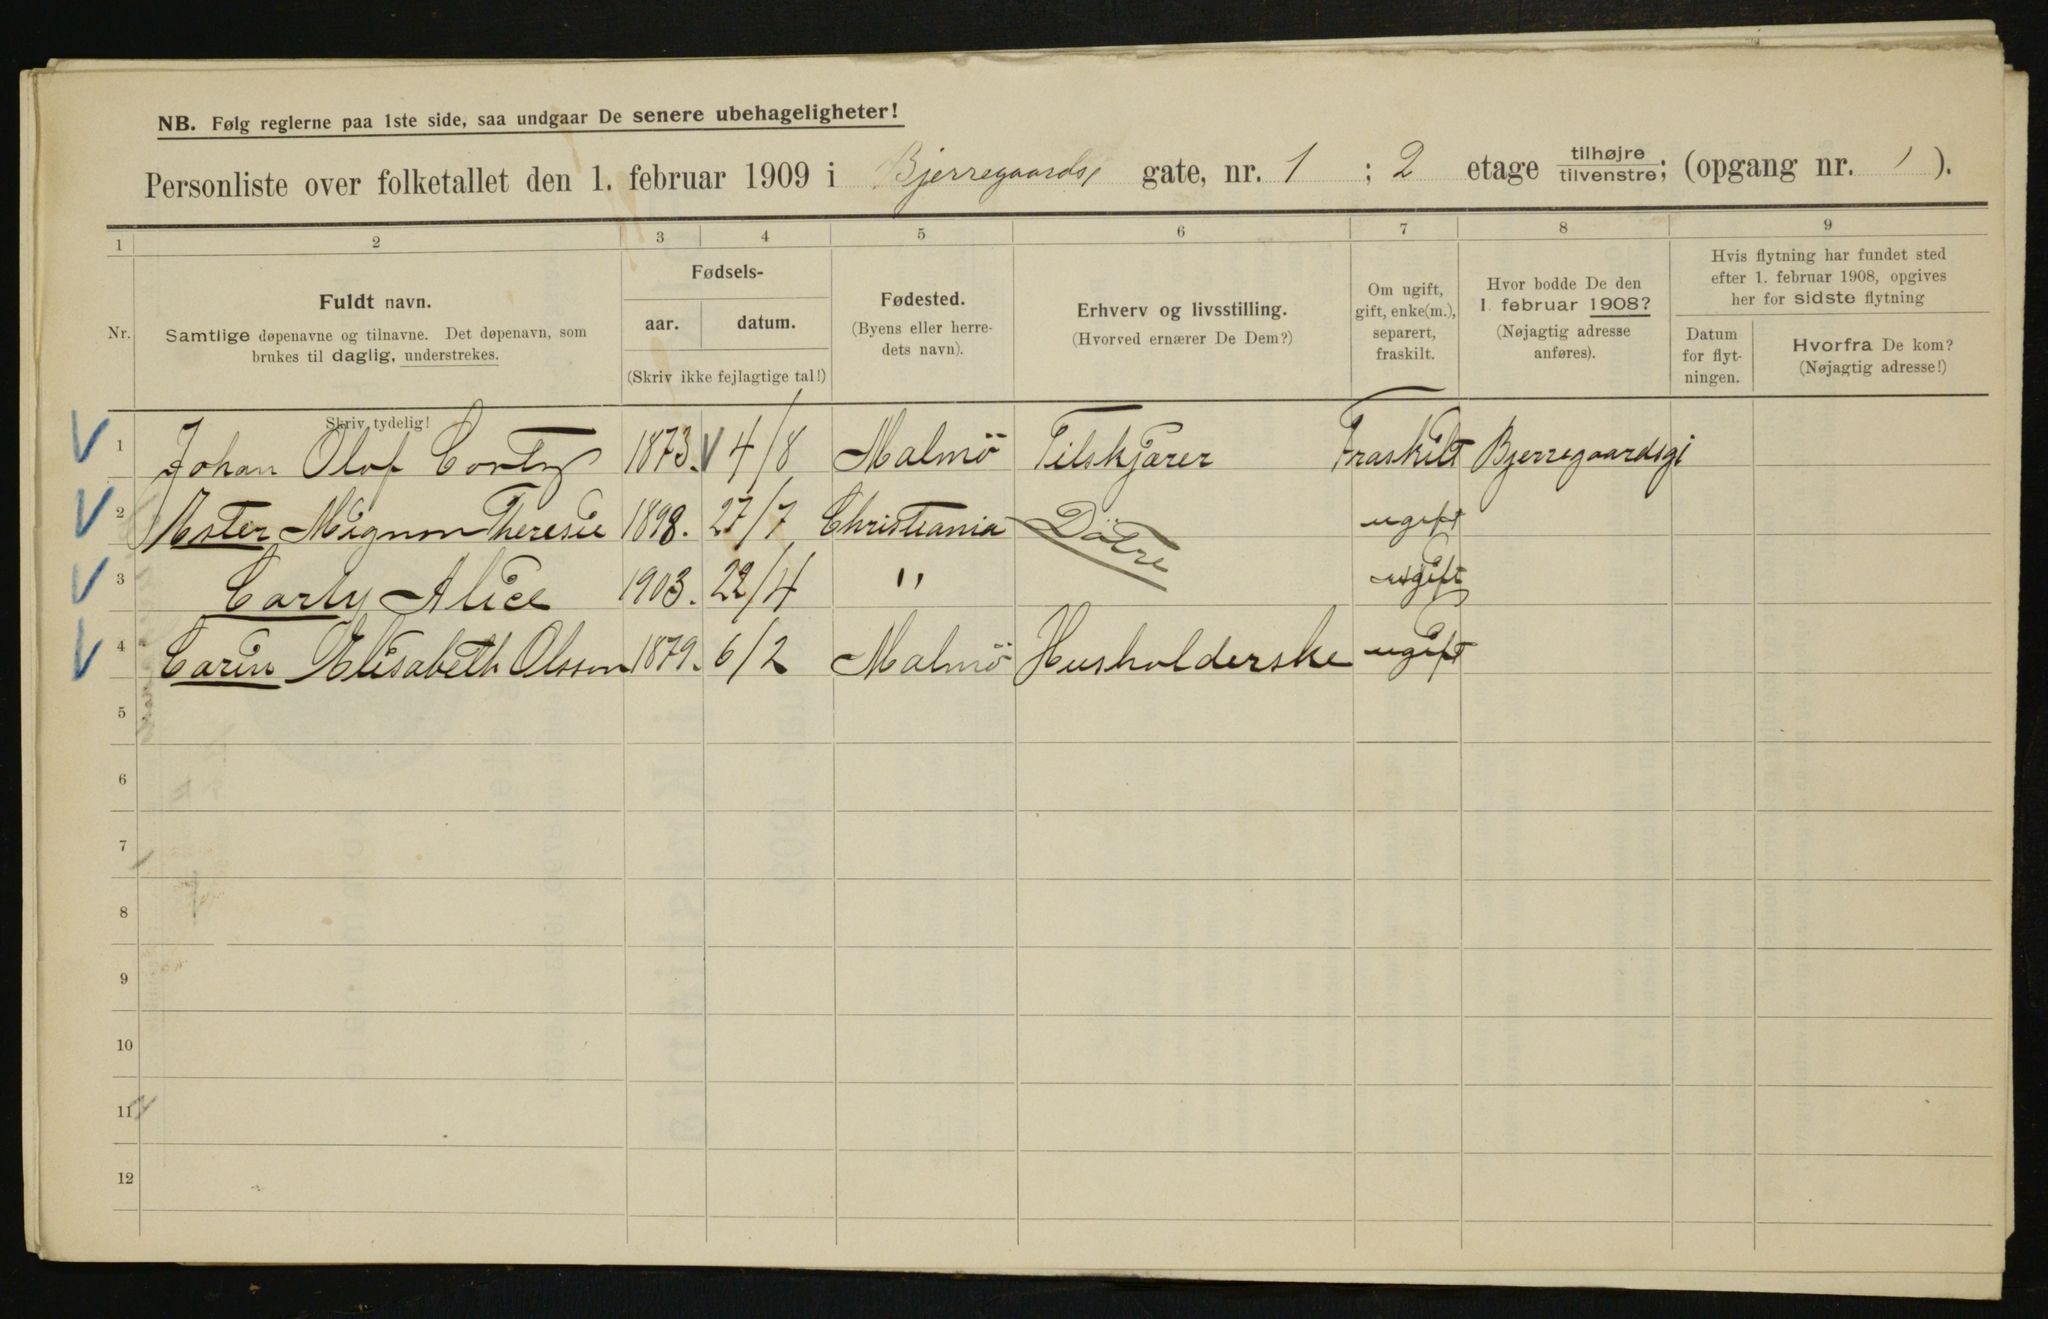 NB. Følg reglerne paa 1ste side, saa undgaar De senere ubehageligheter!
Personliste over folketallet den 1. februar 1909 i Bjerregaards gate, nr. 1 ; 2 etage tilhøjre tilvenstre; (opgang nr. 1 ).
1 2 3 4 5 6 7 8 9
Nr.
Fuldt navn.
Samtlige døpenavne og tilnavne. Det døpenavn, som
brukes til daglig, understrekes.
Skriv tydelig!
Fødsels-
aar. datum.
(Skriv ikke fejlagtige tal!)
Fødested.
(Byens eller herre-
dets navn).
Erhverv og livsstilling.
(Hvorved ernærer De Dem?)
Om ugift,
gift, enke(m.),
separert,
fraskilt.
Hvor bodde De den
1. februar 1908?
(Nøjagtig adresse
anføres).
Hvis flytning har fundet sted
efter 1. februar 1908, opgives
her for sidste flytning
Datum
for flyt-
ningen.
Hvorfra De kom?
(Nøjagtig adresse!)
1 Johan Olof 1873. 4/8 Malmö Tilskjærer Fraskilt Bjerregaardsg 1
2 Ester Mignon Theresie 1898. 27/7 Christiania Döttre ugift
3 Carly Alice 1903. 22/4 " ugift
4 Carin Elisabeth Olsson 1879. 6/2 Malmö Husholderske ugift
5
6
7
8
9
10
11
12